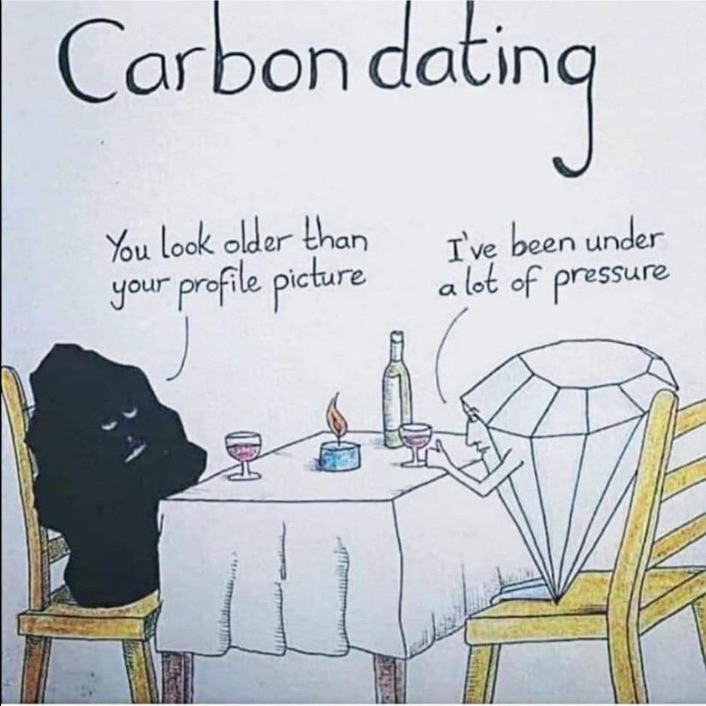 Carbon dating
You look older than
your profile picture
I've been under
a lot of pressure